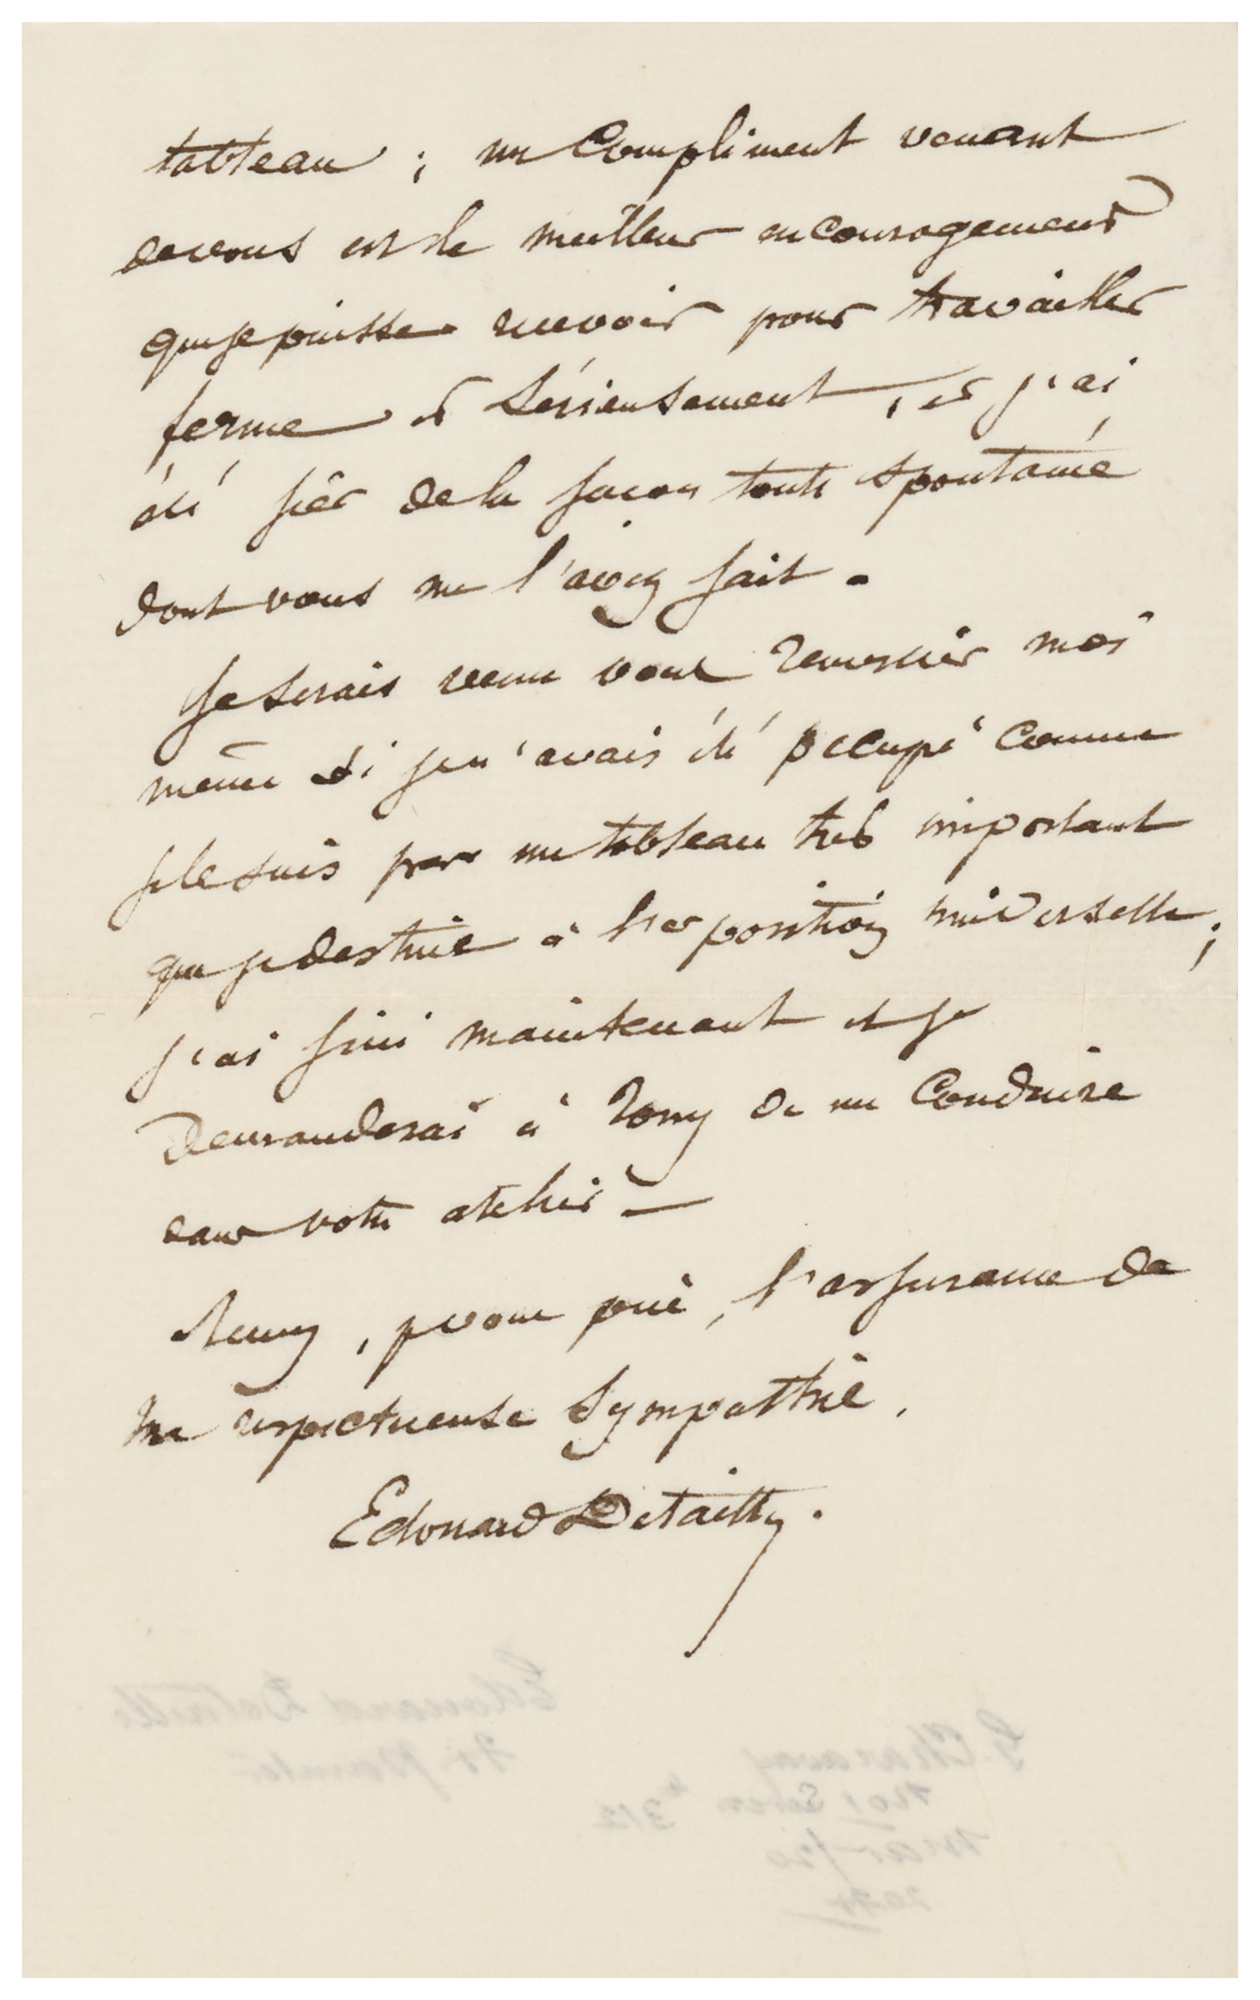 tableau ; un Compliment venant
de vous est le meilleur encouragement
que je puisse recevoir pour travailler
ferme et Sérieusement, et j'ai
été fier de la façon toute spontanée
dont vous me l'avez fait.
Je serais venu vous remercier moi
même si je n'avais été occupé comme
je le suis par un tableau très important
que je destine à l'exposition universelle ;
j'ai fini maintenant et je
Demanderai à Tony de me Conduire
dans votre atelier –
Recevez, je vous prie, l'assurance de
ma respectueuse Sympathie.
Edouard Detaille.
Edouard Detaille
Fr. Painter
G. Charavay
312